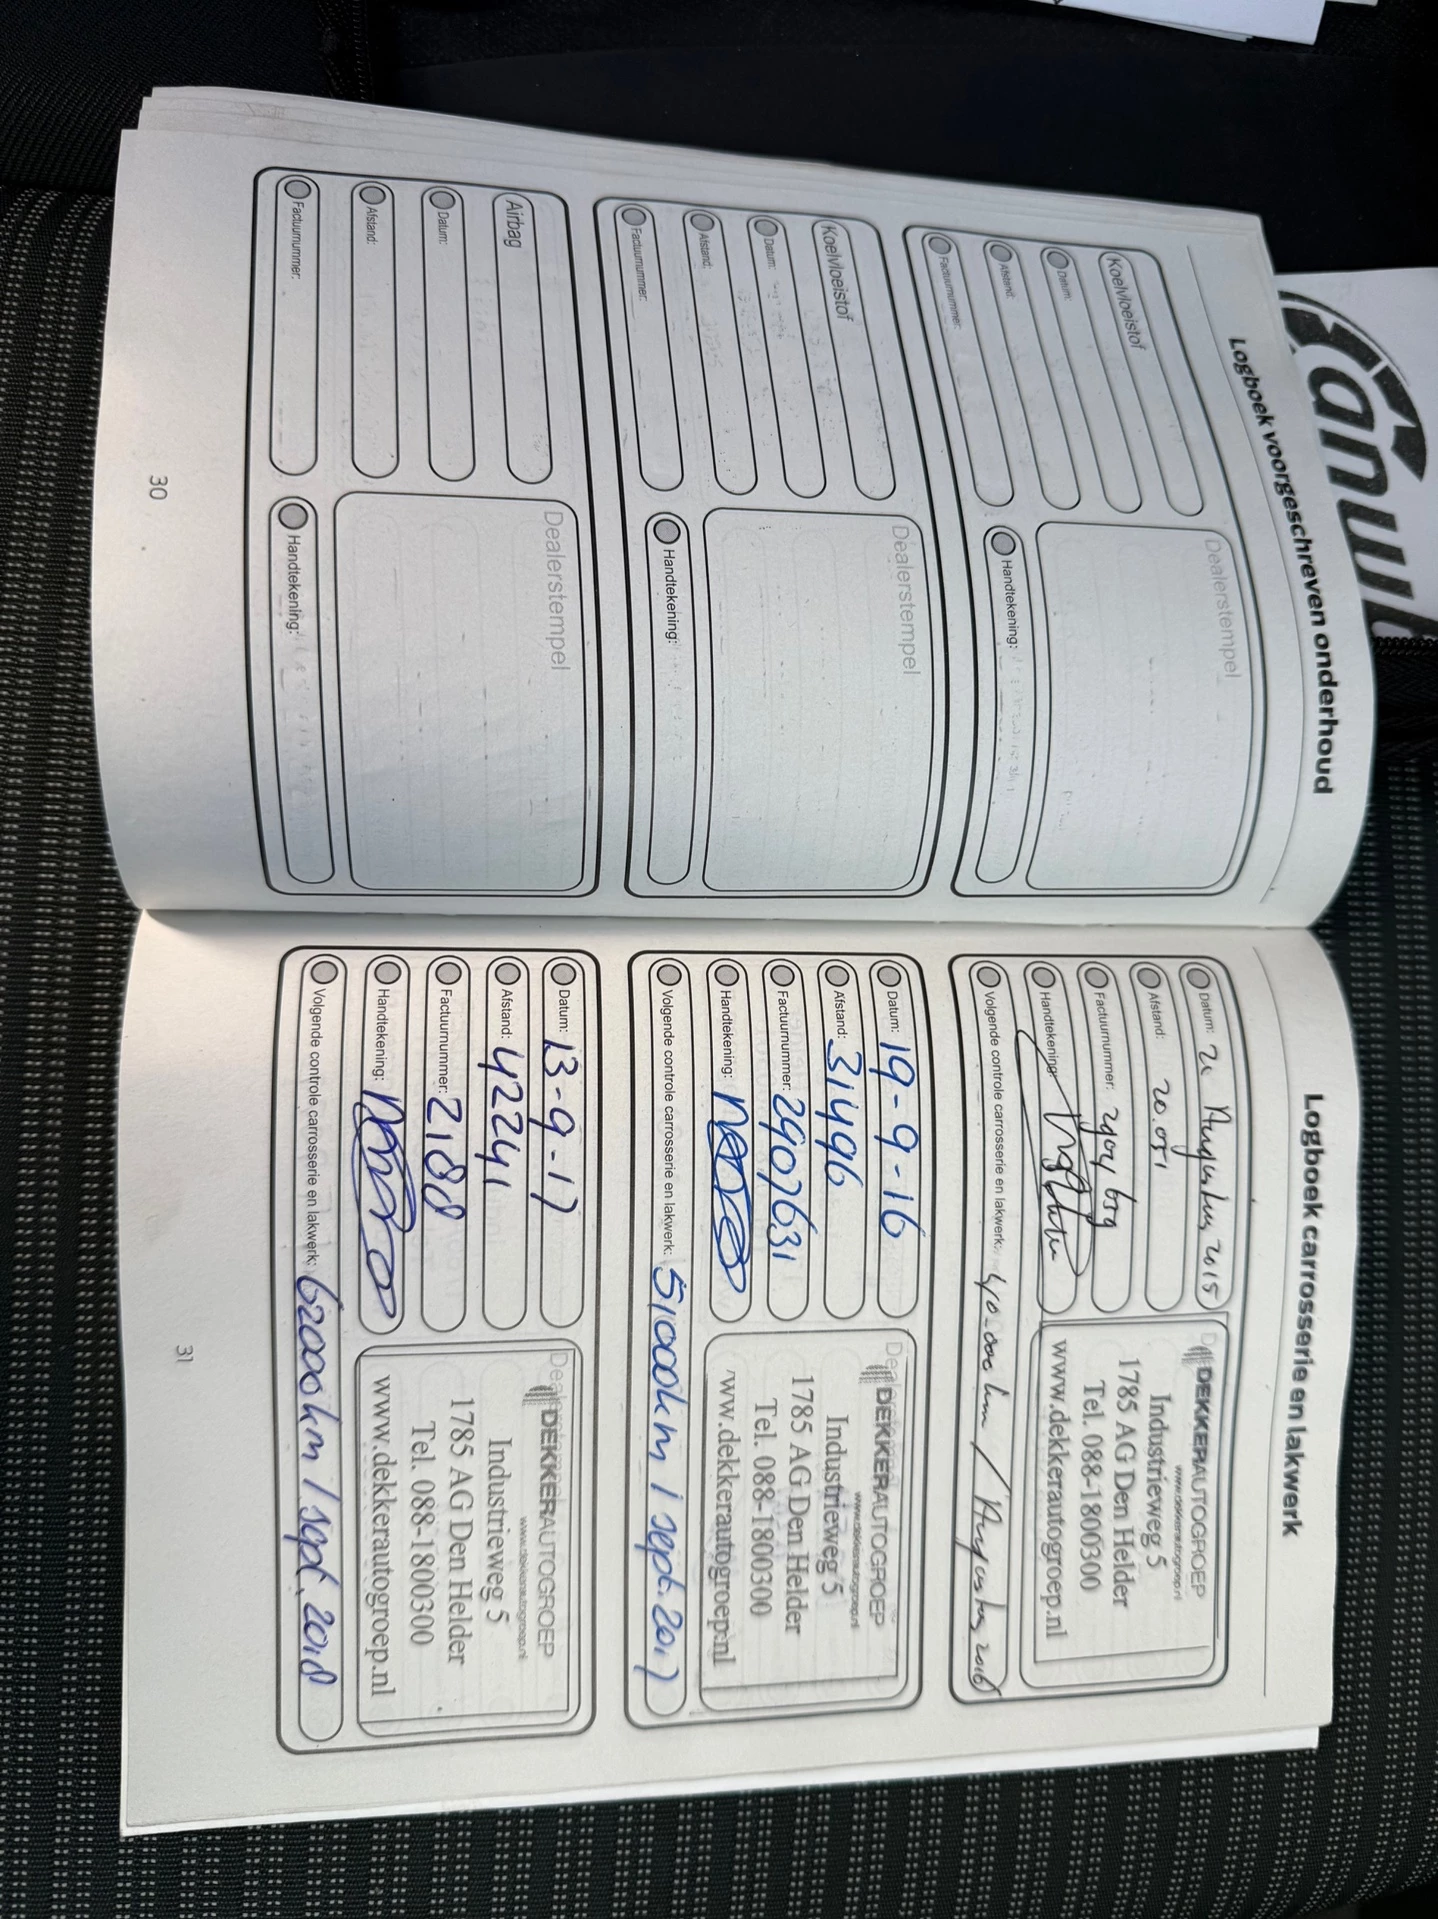 Logboek voorgeschreven onderhoud
Koelvloeistof
Datum:
Afstand:
Factuurnummer:
Dealerstempel
Handtekening:
Koelvloeistof
Datum:
Afstand:
Factuurnummer:
Dealerstempel
Handtekening:
Airbag
Datum:
Afstand:
Factuurnummer:
Dealerstempel
Handtekening:
30
Logboek carrosserie en lakwerk
Datum: Augustus 2015
Afstand: 20.051
Factuurnummer:
Handtekening:
DEKKERAUTOGROEP
www.dekkerautogroep.nl
Industrieweg 5
1785 AG Den Helder
Tel. 088-1800300
www.dekkerautogroep.nl
Volgende controle carrosserie en lakwerk: 40.000 km / Augustus 2016
Datum: 19-9-16
Afstand: 31496
Factuurnummer: 2907631
Handtekening:
DEKKERAUTOGROEP
www.dekkerautogroep.nl
Industrieweg 5
1785 AG Den Helder
Tel. 088-1800300
www.dekkerautogroep.nl
Volgende controle carrosserie en lakwerk: 51000km / sept. 2017
Datum: 13-9-17
Afstand: 42241
Factuurnummer: 2188
Handtekening:
DEKKERAUTOGROEP
www.dekkerautogroep.nl
Industrieweg 5
1785 AG Den Helder
Tel. 088-1800300
www.dekkerautogroep.nl
Volgende controle carrosserie en lakwerk: 62000km / sept. 2018
31